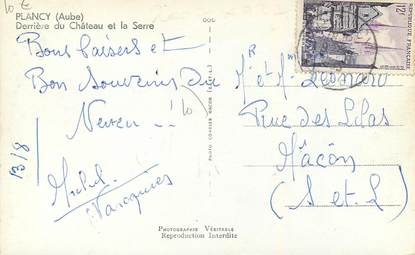 10 €
PLANCY (Aube)
Derrière du Château et la Serre
Bons baisers et
Bon souvenir du
Neveu !!
10
13/8
Michel
Jacques
PHOTOGRAPHIE VÉRITABLE
Reproduction Interdite
RÉPUBLIQUE FRANÇAISE
12F
M et Mme Léonard
Rue des Lilas
Mâcon
(S et L)